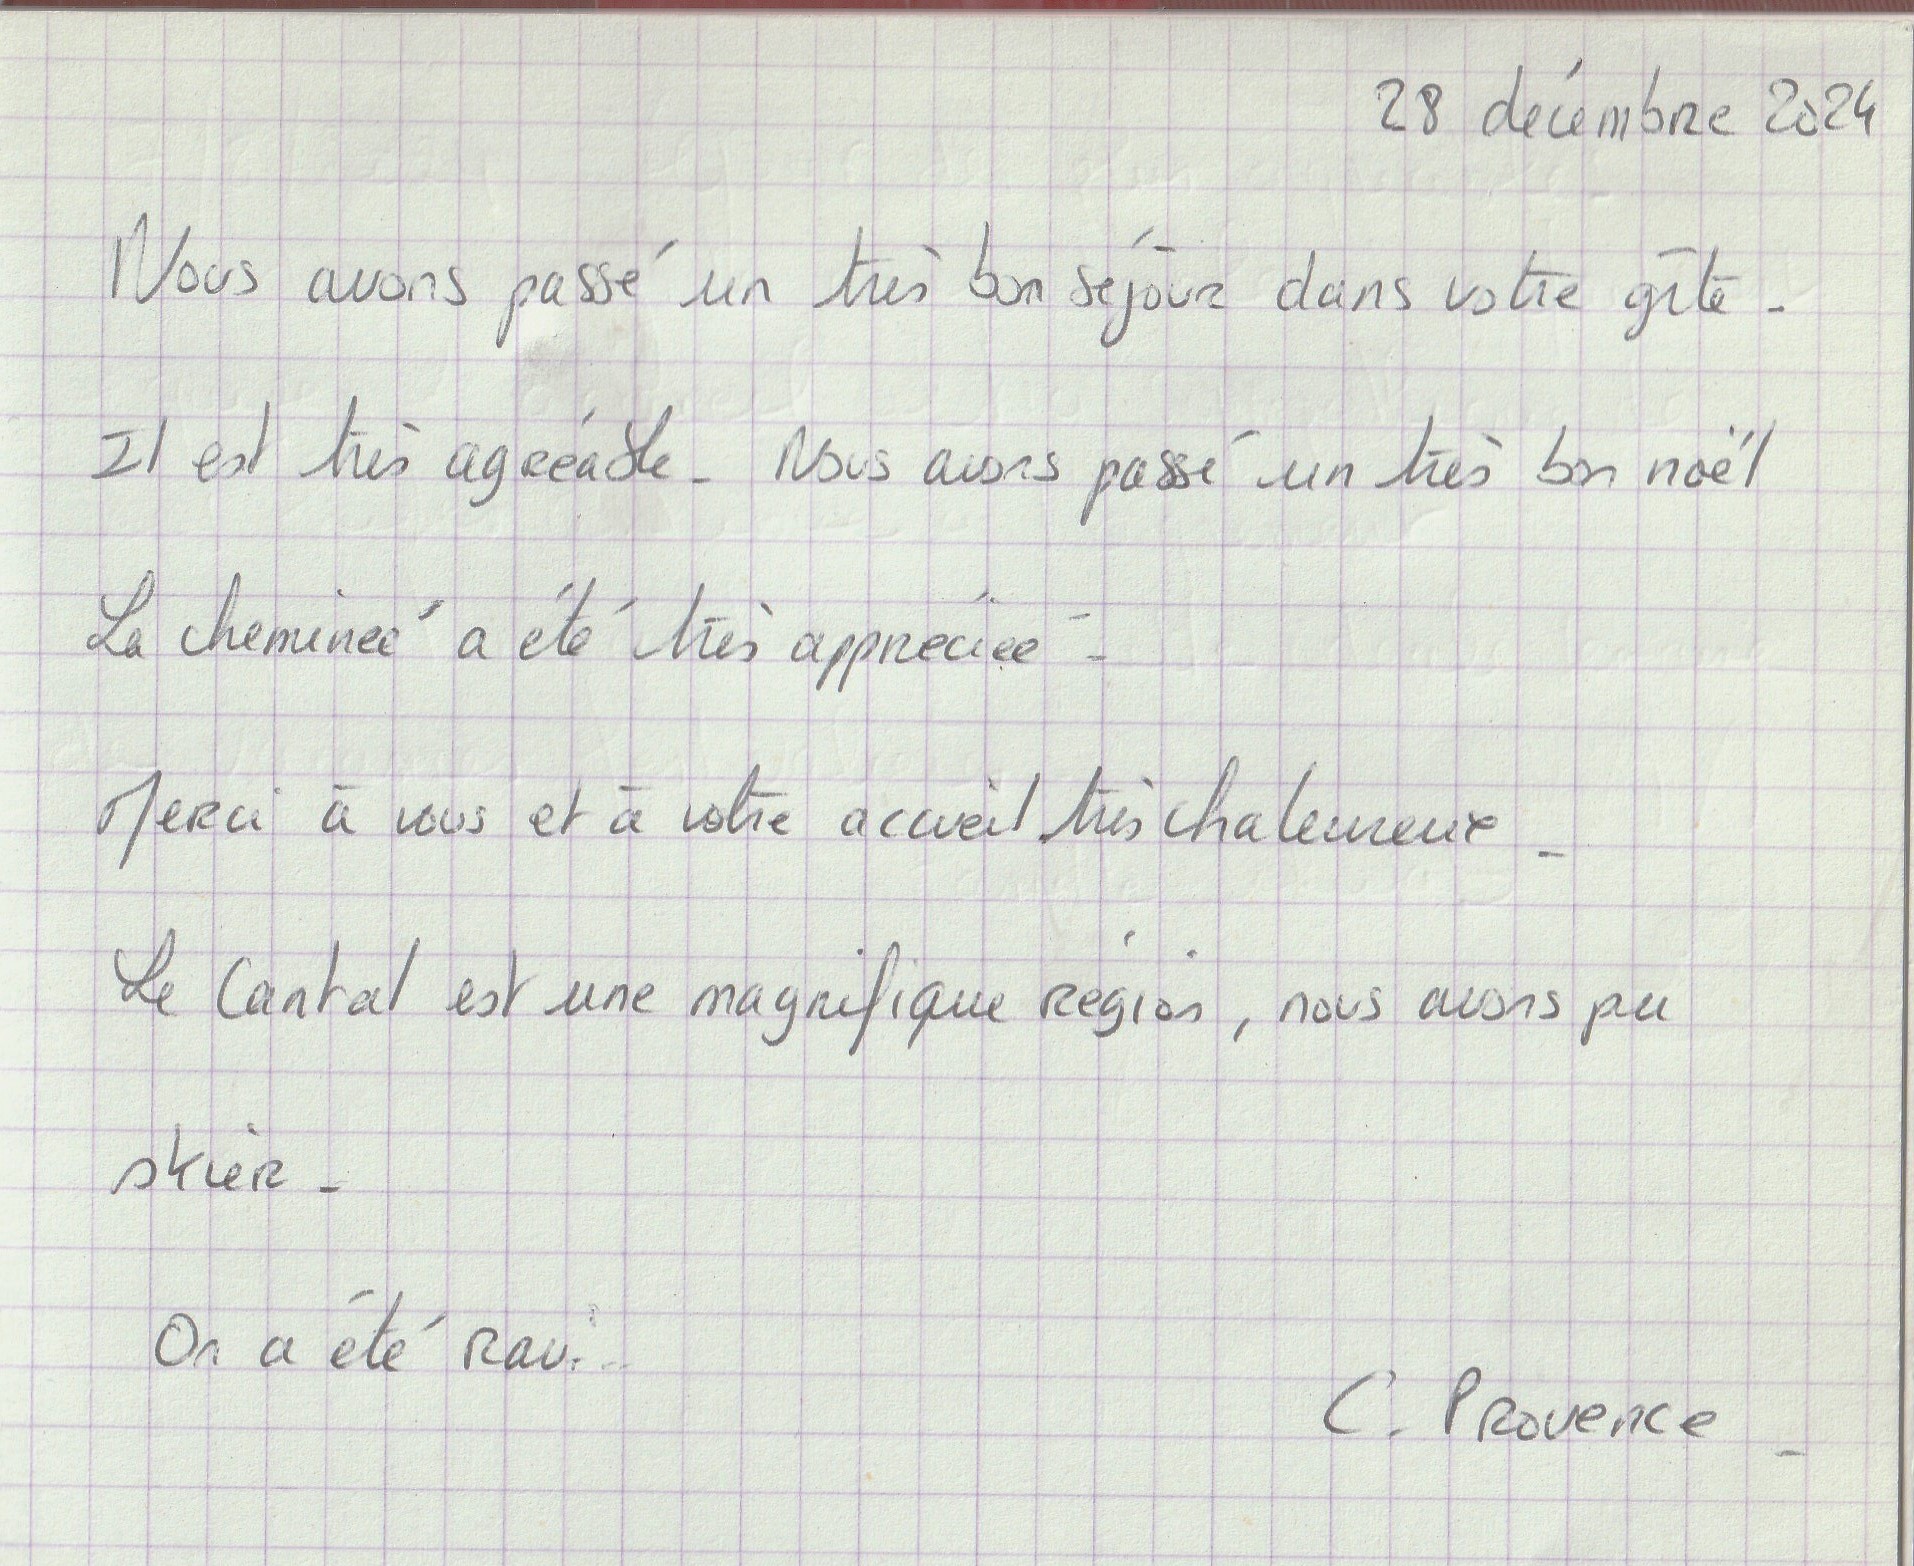 28 décembre 2024
Nous avons passé un très bon séjour dans votre gîte.
Il est très agréable. Nous avons passé un très bon noël
La cheminée a été très appréciée.
Merci à vous et à votre accueil très chaleureux.
Le Cantal est une magnifique région, nous avons pu
skier.
On a été ravi..
C. Provence.